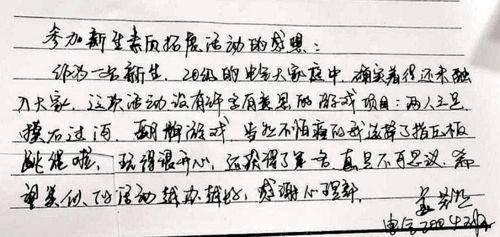 参加新生素质拓展活动的感想：
作为一名新生，20级的电气大家庭中，确实觉得还未融
入大家，这次活动设有许多有意思的游戏项目：两人三足，
摸石过河，游戏，当然不怕痛的我选择了指压板
跳绳啦，玩得很开心，还获得了第一名，真是不可思议，希
望类似的活动越办越好，感谢心理部。
电气2004班